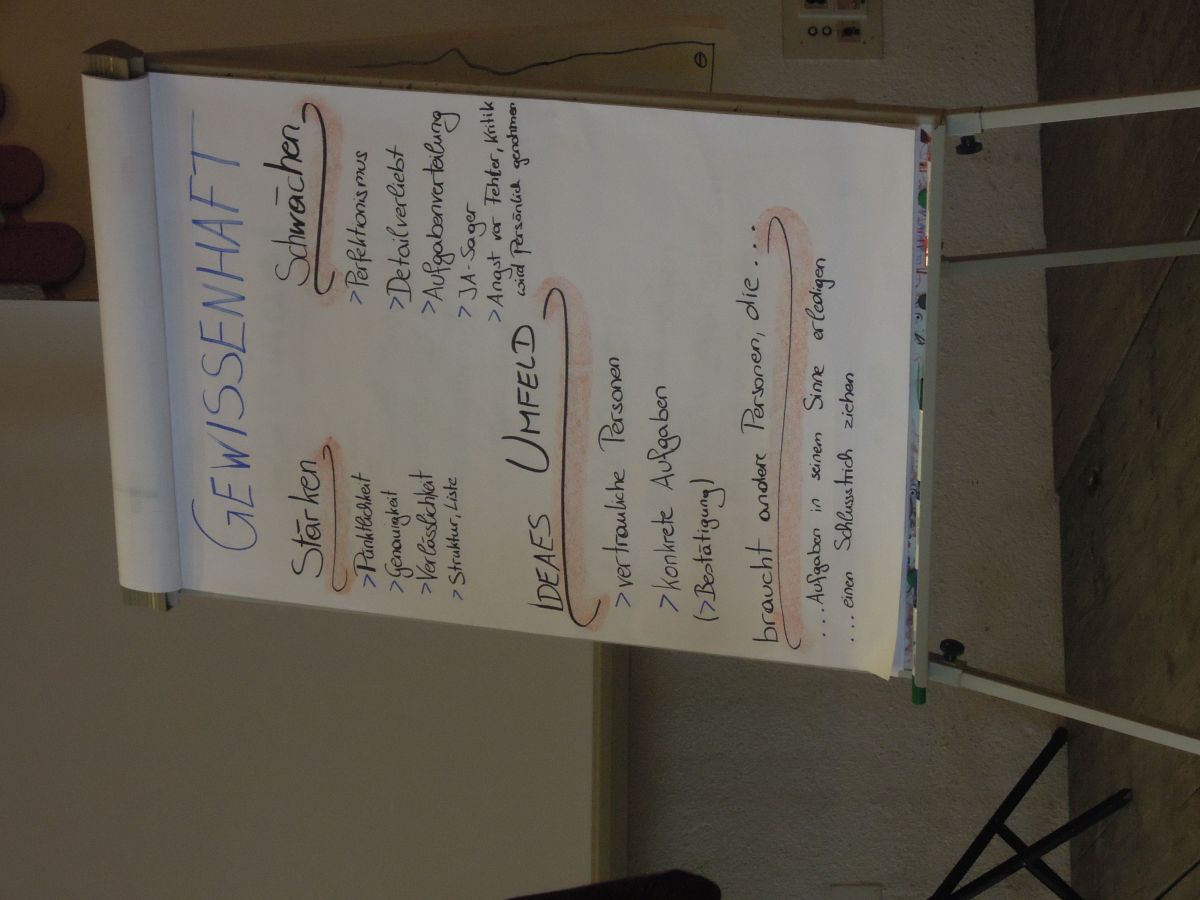 GEWISSENHAFT
Stärken
> Pünktlichkeit
> Genauigkeit
> Verlässlichkeit
> Struktur, Liste
Schwächen
> Perfektionismus
> Detailverliebt
> Aufgabenverteilung
> JA-Sager
> Angst vor Fehler, Kritik
wird Persönlich genohmen
IDEAES UMFELD
> vertrauliche Personen
> Konkrete Aufgaben
(> Bestätigung)
braucht andere Personen, die ...
... Aufgaben in seinem Sinne erledigen
... einen Schlussstrich ziehen